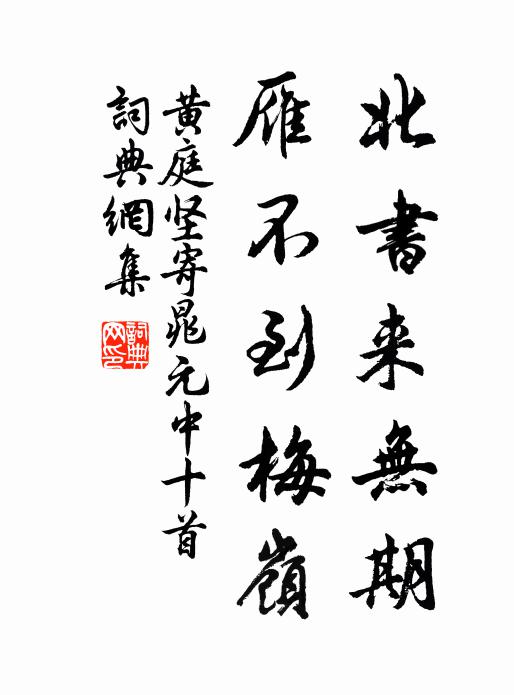 北書来無期
雁不到梅嶺
黄庭坚寄晁元中十首
詞典網集
詞典網印